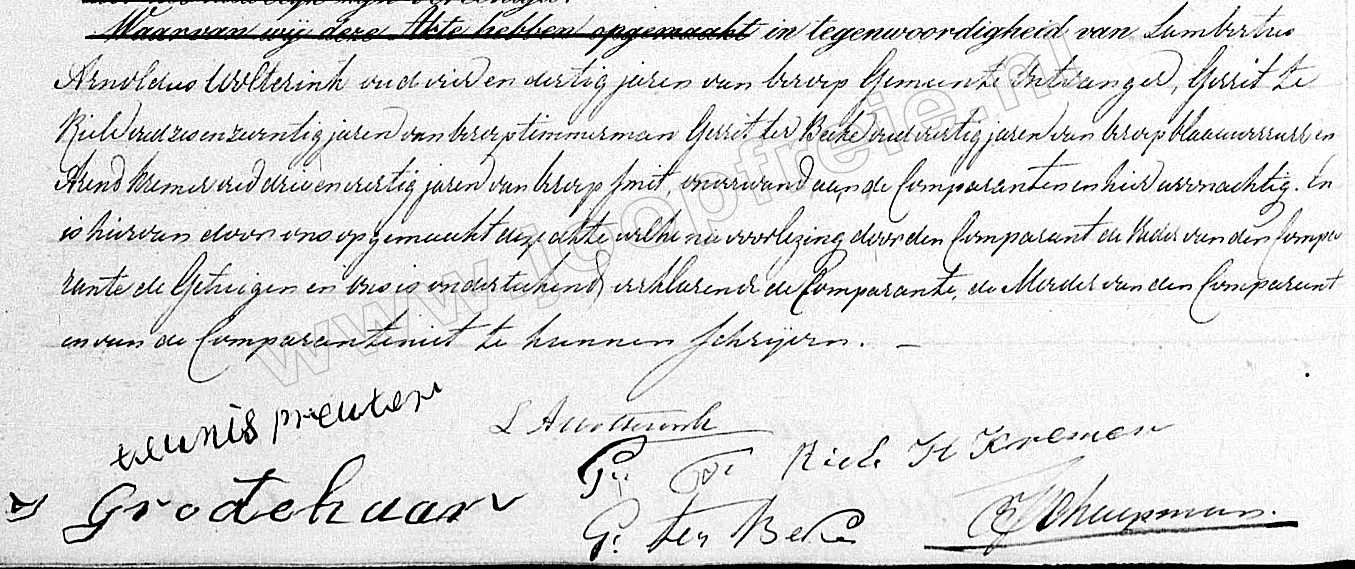 Waarvan wij deze Akte hebben opgemaakt in tegenwoordigheid van Lambertus
Arnoldus Wolterink oud vier en dertig jaren van beroep Gemeente Ontvanger, Gerrit te
Riele oud zes en zeventig jaren van beroep timmerman Gerrit ter Beeke oud veertig jaren van beroep blaauwverver en
Arend Kremer oud drie en veertig jaren van beroep smit, onverwand aan de Comparanten en hier woonachtig. En
is hiervan door ons opgemaakt deze akte welke na voorlezing door den Comparant de Vader van den Compa
rante de Getuigen en ons is onderteekend, verklarende de Comparante, de Moeder van den Comparant
en van de Comparante niet te kunnen schrijven. —
teunis preuter
L A Wolterink
G. te Riele H Kremer
Grotehaar
G. ter Beke
Schuepman.
www.joopfreie.nl